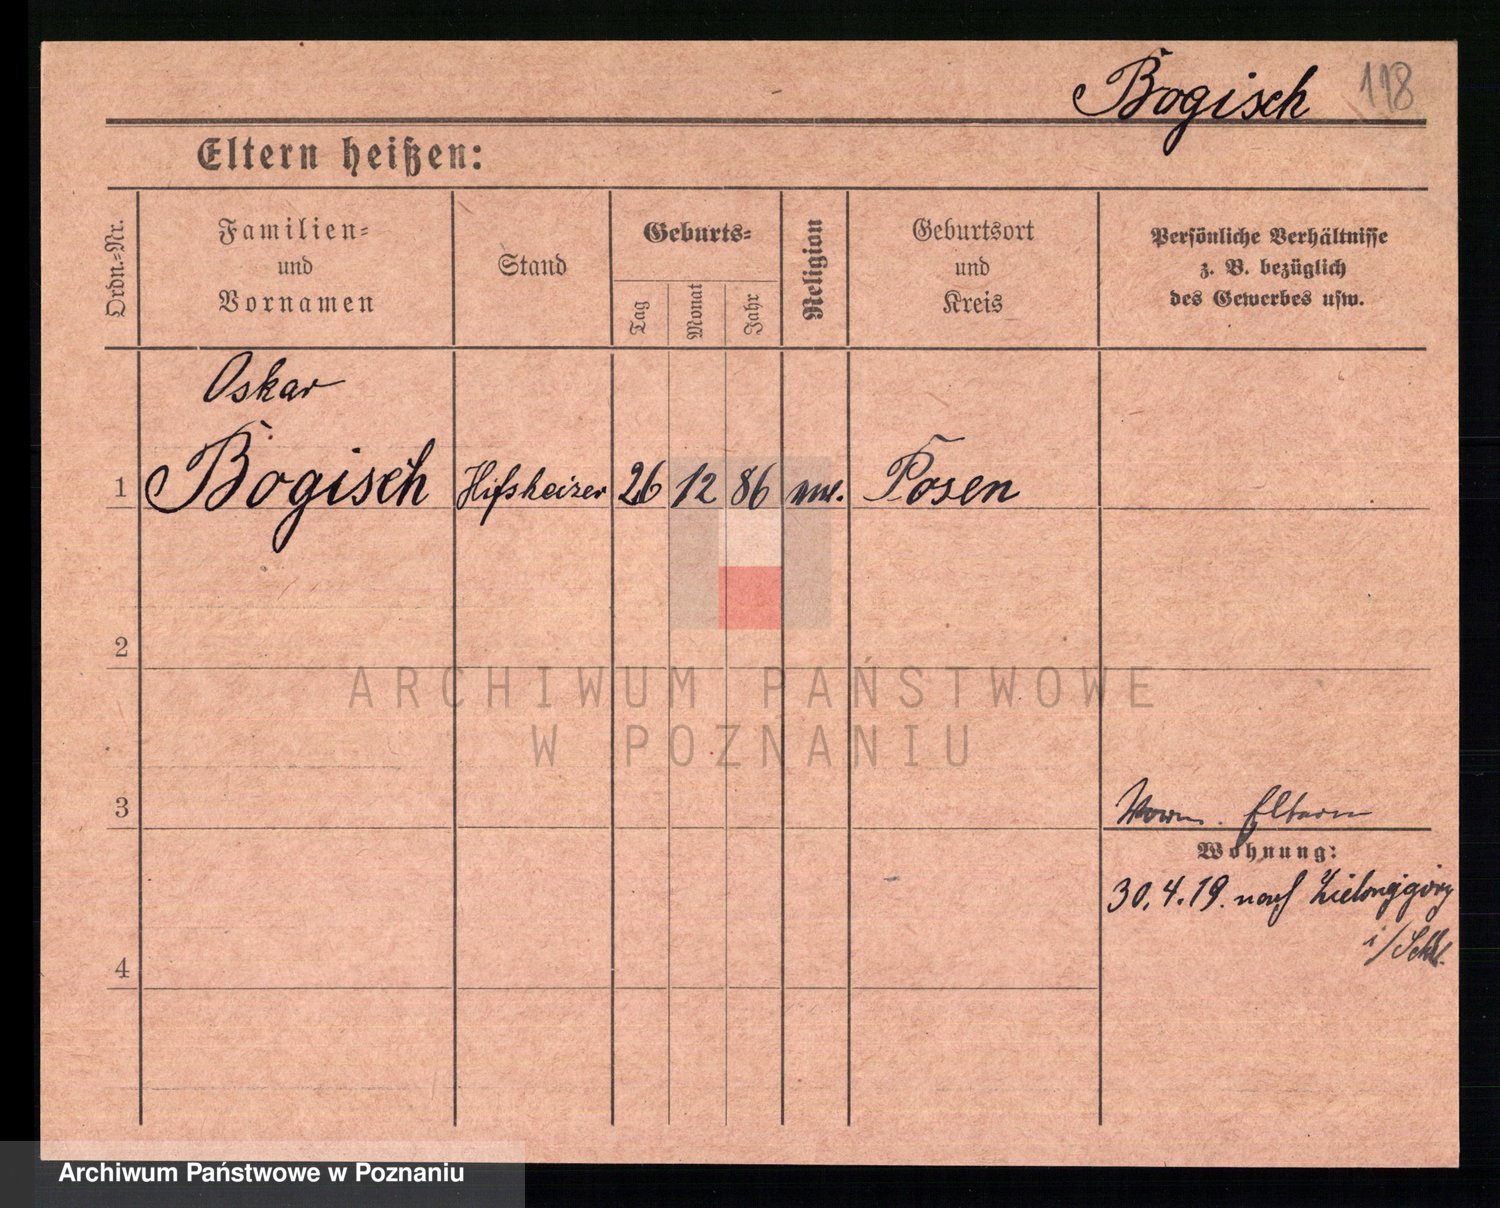 Bogisch 118
Eltern heißen:
Ordn.-Nr.
Familien-
und
Vornamen
Stand
Geburts-
Tag
Monat
Jahr
Religion
Geburtsort
und
Kreis
Persönliche Verhältnisse
z. B. bezüglich
des Gewerbes usw.
Oskar
1 Bogisch Hifsheizer 26 12 86 Posen
2
3
Eltern
Wohnung:
30.4.19. nach
i/Schl.
4
ARCHIWUM PAŃSTWOWE
W POZNANIU
Archiwum Państwowe w Poznaniu